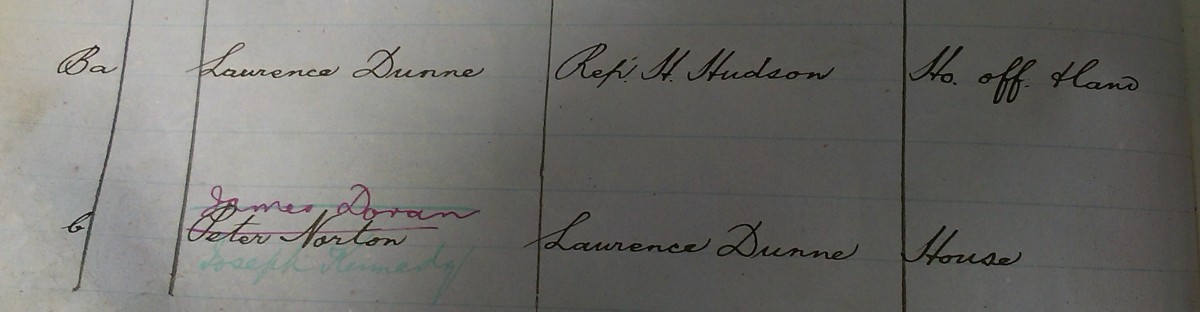 Ba Laurence Dunne Rep. H. Hudson Ho. off. & land
James Doran
b Peter Norton Laurence Dunne House
Joseph Kennedy